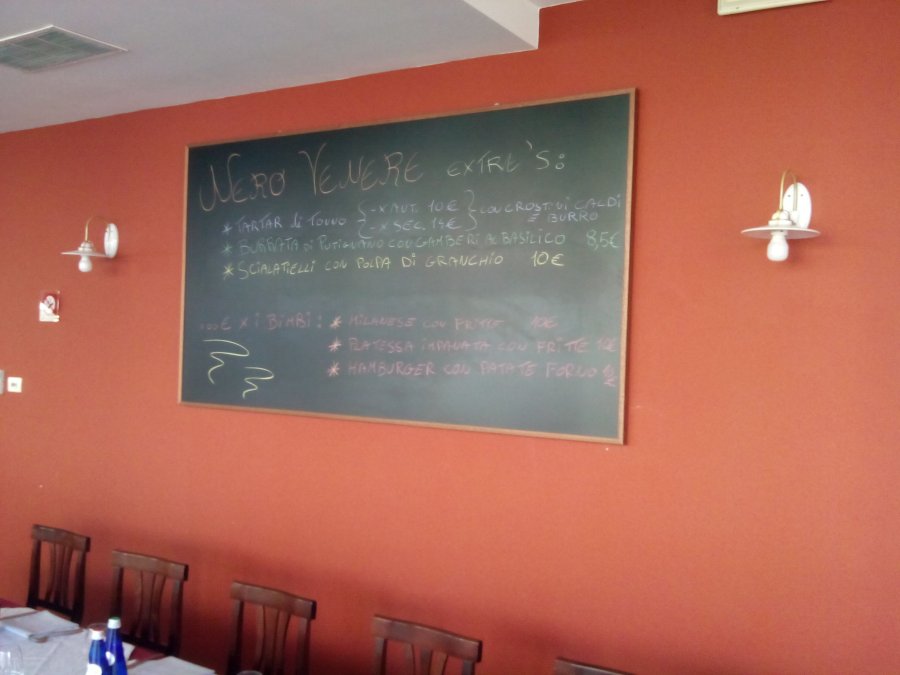 NERO VENERE EXTRE'S:
* TARTAR di TONNO { - X ANT. 10€ - X SEC. 14€ } CON CROSTINI CALDI E BURRO
* BURRATA DI PUTIGNANO CON GAMBERI AL BASILICO 8,5€
* SCIALATIELLI CON POLPA DI GRANCHIO 10€
...€ X i BIMBI: * MILANESE CON FRITTE 10€
* PLATESSA IMPANATA CON FRITTE 10€
* HAMBURGER CON PATATE FORNO